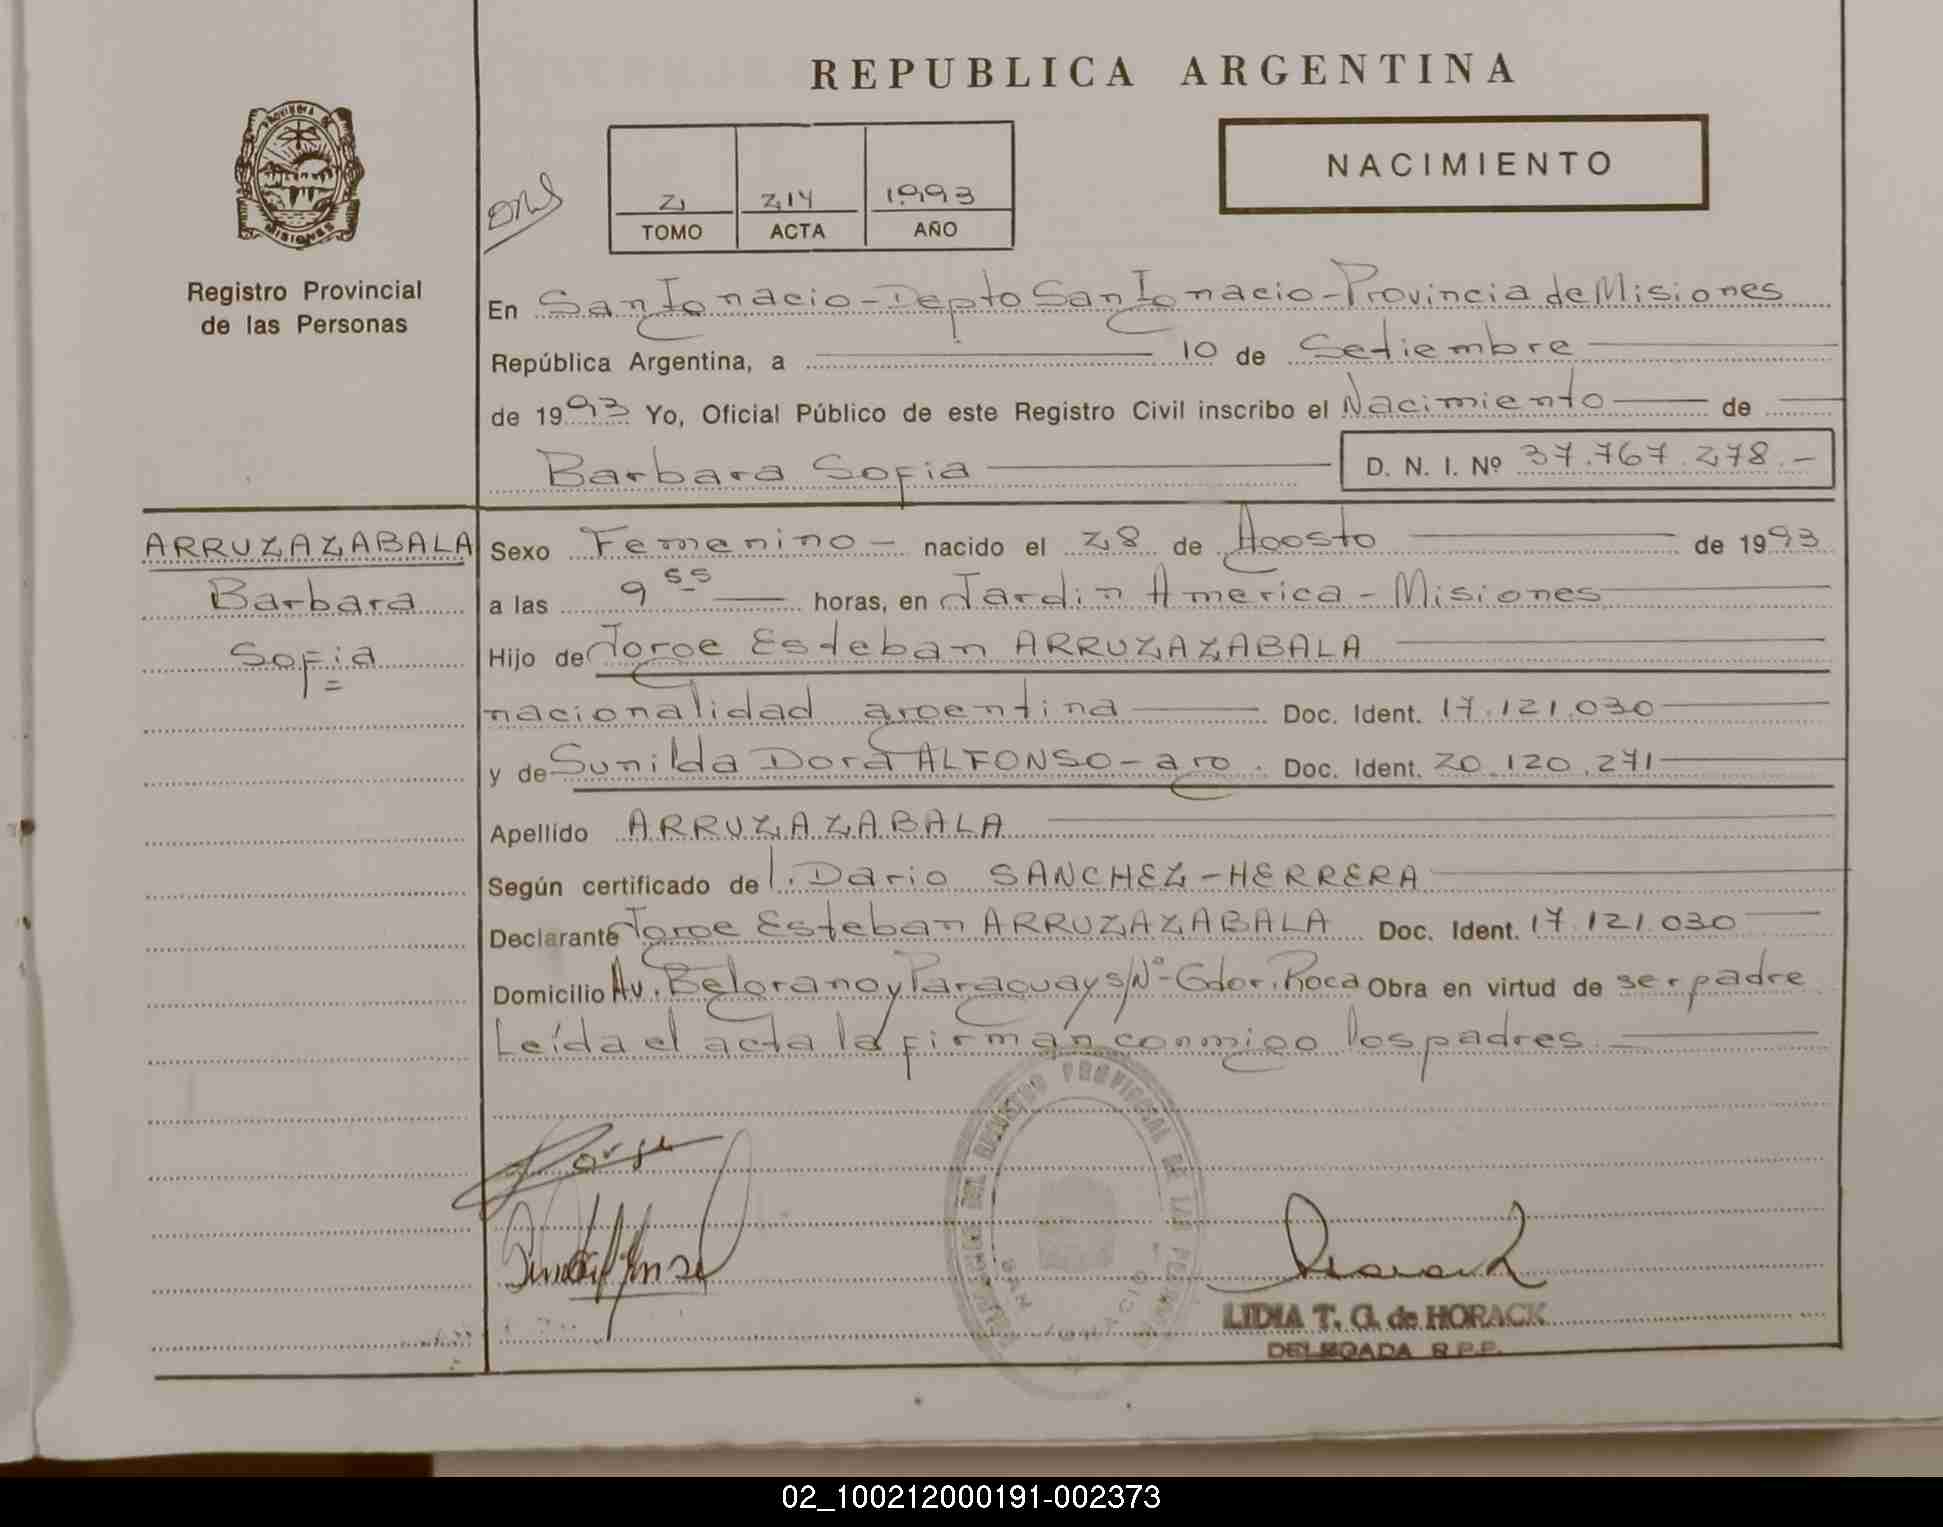 REPUBLICA ARGENTINA
PROVINCIA DE
MISIONES
NACIMIENTO
2 214 1993
TOMO ACTA AÑO
Registro Provincial
de las Personas
En San Ignacio - Depto San Ignacio - Provincia de Misiones
República Argentina, a 10 de Setiembre
de 1993 Yo, Oficial Público de este Registro Civil inscribo el Nacimiento de
Barbara Sofia D. N. I. Nº 37.767.278.-
ARRUZAZABALA
Barbara
Sofia
Sexo Femenino - nacido el 28 de Agosto de 1993
a las 9 55 horas, en Jardin America - Misiones
Hijo de Jorge Esteban ARRUZAZABALA
nacionalidad argentina Doc. Ident. 17.121.030
y de Sunilda Dora ALFONSO - arg. Doc. Ident. 20.120.271
Apellido ARRUZAZABALA
Según certificado de I. Dario SANCHEZ - HERRERA
Declarante Jorge Esteban ARRUZAZABALA Doc. Ident. 17.121.030
Domicilio Av. Belgrano y Paraguay s/Nº - Gdor. Roca Obra en virtud de ser padre
Leída el acta la firman conmigo los padres.
REGISTRO PROVINCIAL DE LAS
SAN IGNACIO
LIDIA T. G. de HORACK
DELEGADA R.P.P.
02_100212000191-002373